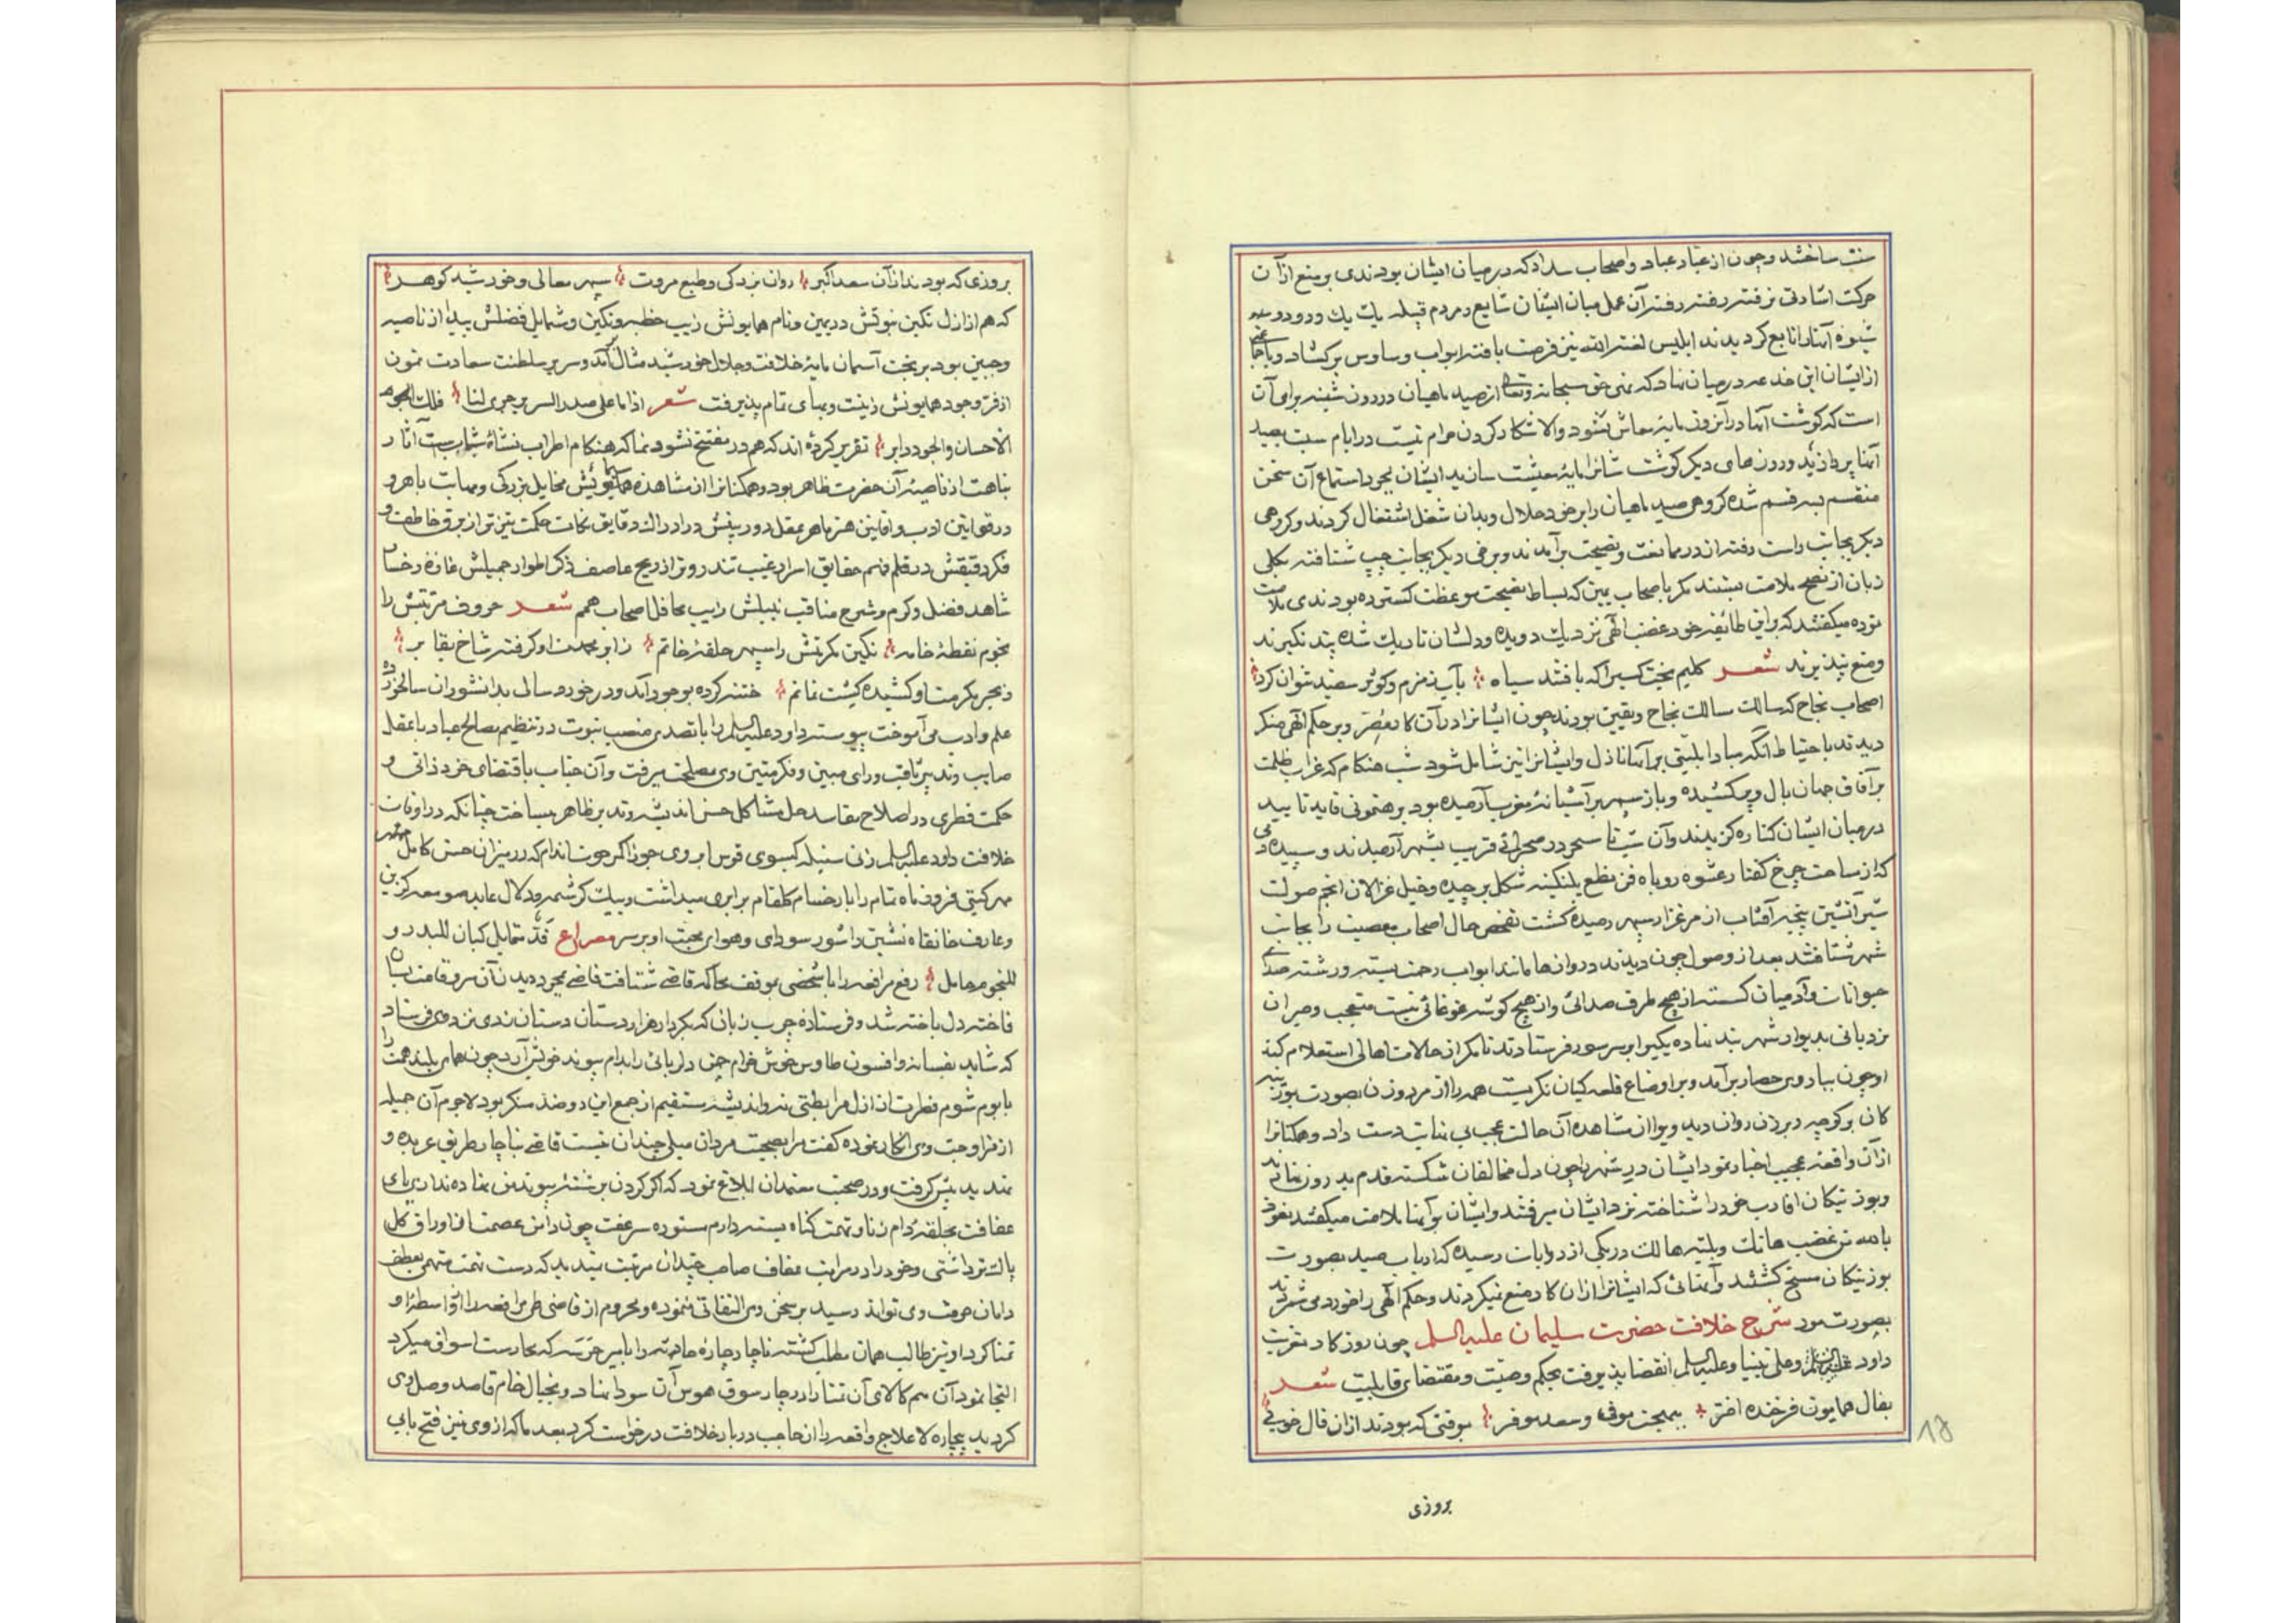 سنت ساختند و چون از عباد عباد و اصحاب سداد که در میان ایشان بودندی بر منع از آن
حرکت اشارتی نرفته رفته رفته آن عمل میان ایشان شایع و مردم قبیله یک یک و دو دو
شیوه آنها را تابع گردیدند ابلیس لعنة الله نیز فرصت یافته ابواب وساوس بر گشاد و
از ایشان این خدعه در میان نهاد که نهی حق سبحانه و تعالی از صید ماهیان در روز شنبه برای آن
است که گوشت آنها در آنروز مایه معاش نشود والا شکار کردن حرام نیست در ایام سبت بصید
آنها پردازید و روزهای دیگر گوشت شانرا مایه معیشت سازید ایشان بمجرد استماع آن سخن
منقسم بسه قسم شده گروهی صید ماهیان را بر خود حلال و بدان شغل اشتغال کردند و گروهی
دیگر بجانب راست رفته از در ممانعت و نصیحت برآمدند و برخی دیگر بجانب چپ شتافته بکلی
زبان از نصح و ملامت بستند مگر باصحاب یمین که بساط نصیحت و موعظت گسترده بودندی ملامت
نموده میگفتند که واین طائفه خود غضب الهی نزدیک دویده و دلشان تاریک شده پند نگیرند
و منع نپذیرند شعر گلیم بخت کسیرا که بافتند سیاه بآب زمزم و کوثر سفید نتوان کرد
اصحاب نجاح که سالک مسالک نجاح و یقین بودند چون ایشانرا در آن کار مصر و بر حکم الهی منکر
دیدند باحتیاط آنکه مبادا بلیتی بر آنها نازل و ایشانرا نیز شامل شود شب هنگام که غراب ظلمت
بر آفاق جهان بال و پر کشیده و باز سپهر بر آشیانه مغرب آرمیده بود برهنمونی قاید تایید
از میان ایشان کناره گزیدند و آن شب تا سحر در صحرائی قریب بشهر آرمیدند و سپیده دمی
که از ساحت چرخ کفتار عشوه روباه فن مطلع پلنگینه شکل برچیده و خیل غزالان انجم صولت
شیر آتشین پنجه آفتاب از مرغزار سپهر رمیده گشت تفحص حال اصحاب معصیت را بجانب
شهر شتافتند بعد از وصول چون دیدند دروازها مانند ابواب رحمت بسته و رشته صدای
حیوانات و آدمیان گسسته از هیچ طرف صدائی و از هیچ گوشه غوغائی نیست متعجب و حیران
نردبانی بدیوار شهر بند نهاده یکیرا بر سر سور فرستادند تا مگر از حالات اهالی استعلام کند
او چون بباروی حصار برآمد و بر اوضاع قلعه گیان نگریست همه را از مرد و زن بصورت بوزینه
گان بر کوچه و برزن روان دید ویرا از مشاهده آن حالت عجب بی نهایت دست داد و همگنانرا
از آن واقعه عجیب اخبار نمود ایشان در شهر را چون دل مخالفان شکسته قدم بدرون نهادند
و بوزینگان اقارب خود را شناخته نزد ایشان میرفتند و ایشان بر آنها ملامت میگفتند نعوذ
بالله من غضب هاتک و بلیة هالک در یکی از روایات رسیده که ارباب صید بصورت
بوزینگان مسخ گشتند و آنهائی که ایشانرا از آن کار منع نمیکردند و حکم الهی را خورد می شمردند
بصورت مور شرح خلافت حضرت سلیمان علیه السلم چون روزگار نبوت
داود علیه السلم و علی نبینا و علیه السلم انقضا پذیرفت بحکم وصیت و مقتضای قابلیت شعر
بفال همایون فرخنده اختر ببخت موفق و سعد موفر بوقتی که بودند از آن فال خوبی
بروزی
بروزی که بودند از آن سعد اکبر روان بزرگی و طبع مروت سپهر معالی و خورشید گوهر
که هم از ازل نگین نبوتش در یمین و نام همایونش زیب خطبه و نگین و شمایل فضلش پیدا از ناصیه
و جبین بود بر تخت آسمان مایه خلافت و جلال خورشید مثال برآمد و سریر سلطنت سعادت نمون
از فر وجود همایونش زینت و بهای تمام پذیرفت شعر اذا ما علی صدر السریر جری لنا فلک
الاحسان والجود دایر تقریر کرده اند که هم در مفتتح نشو و نما که هنگام اطراب نشاة شبابست آثار
نباهت از ناصیه آن حضرت ظاهر بود و همگنانرا از مشاهده همایونش مخایل بزرگی و مهابت باهر و
در قوانین ادب و افانین هنر ماهر بعقل دور بینش در ادراک دقایق نکات حکمت تیزتر از برق خاطف و
فکر دقیقش در قلم فهم حقایق اسرار غیب تندروتر از ریح عاصف ذکر اطوار جمیلش غازه رخسار
شاهد فضل و کرم و شرح مناقب نبیلش زیب محافل اصحاب همم شعر حروف مرتبتش را
نجوم نقطه خامه نگین مکرمتش را سپهر حلقه خاتم ز ابر معدلت او گرفته شاخ بقا بر
ز بحر مکرمت او کشیده کشت غانم ختنه کرده بوجود آمد و در خورد سالی بدانشوران سالخورده
علم و ادب می آموخت پیوسته داود علیه السلم را با تصدی منصب نبوت در تنظیم مصالح عباد با عقل
صایب و تدبیر ثاقب و رای مبین و فکر متین وی مصلحت میرفت و آن جناب باقتضای خرد ذاتی و
حکمت فطری در اصلاح مفاسد و حل مشاکل حسن اندیشه و تدبیر ظاهر میساخت چنانکه در اوقات
خلافت داود علیه السلم زنی سنبله گیسوی قوس ابروی جوزا کمر حوت اندام که در میزان حسن کامل
مهر گیتی فروز ماه تمام را با رخسار کلفام برابری میداشت و بیک کرشمه و دلال عابد صومعه گزین
و عارف خانقاه نشین را شور سودای و هوای محبت او بر سر مصراع قد متمایل کبان للبدر و
للنجوم حامل رفع مرافعه را با شخصی بموقف محاکمه قاضی شتافت قاضی بمجرد دیدن آن سرو قامت بسان
فاخته دل باخته شد و فرستاده چرب زبان که بکردار هزار دستان دستان زدی نزد وی فرستاد
که شاید بفسانه و افسون طاوس خوش خرام چمن دلربائی را بدام پیوند خویش آرد چون همای بلند همت را
با بوم شوم فطرت از ازل مرابطتی نه و اندیشه مستقیم از جمع این دو ضد منکر بود لاجرم آن جمیله
از مزاوجت وی انکار نموده گفت مرا بصحبت مردان میلی چندان نیست قاضی بناچار طریق عربده و
تهدید پیش گرفت و در صحبت معتمدان ابلاغ نمود که اگر گردن بر شته پیوند من نهاده نداری پای
عفافت بحلقه دام زنا و تهمت گناه بسته دارم مستوره سر عفت چون دامن عصمت از اوراق گل
پاک تر داشتی و خود را در مراتب عفاف صاحب چندان مرتبت میدید که دست تهمت متهمی بعطف
دامان عرفت وی تواند رسید بر سخن وی التفاتی ننموده و محروم از قاضی طی مرافعه را از واسطه او
تمنا کرد او نیز طالب همان مطلب گشته ناچار چاره حادثه را با میر حرسه که بحارست اسواق میکرد
التجا نمود آن هم کالای آن تمنا را در چار سوق هوس آن سودا نهاد و بخیال خام قاصد وصل وی
گردید بیچاره لاعلاج واقعه را از حاجب دربار خلافت درخواست کرد بعد ما که از وی نیز فتح بابی